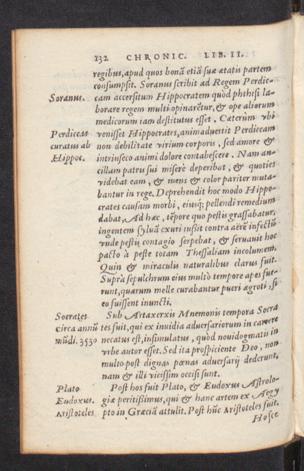 132 CHRONIC. LIB. II.
regibus, apud quos bonā etiā suæ ætatis partem
consumpsit. Soranus scribit ad Regem Perdic-
Soranus. cam accersitum Hippocratem quòd phthisi la-
borare regem multi opinarētur, & ope aliorum
medicorum iam destitutus esset. Cæterùm vbi
Perdiccæ venisset Hippocrates, animaduertit Perdiccam
curatus ab non debilitate virium corporis, sed amore &
Hippoc. intrinseco animi dolore contabescere. Nam an-
cillam patris sui miserè deperibat, & quoties
videbat eam, & mens & color pariter muta-
bantur in rege. Deprehendit hoc modo Hippo-
crates causam morbi, eiusq; pellendi remedium
dabat. Ad hæc, tēpore quo pestis grassabatur,
ingentem syluā exuri iussit contra aërē infectū
vnde pestis contagio serpebat, & seruauit hoc
pacto à peste totam Thessaliam incolumem.
Quin & miraculis naturalibus clarus fuit.
Supra sepulchrum eius multò tempore apes fue-
runt, quarum melle curabantur pueri ægroti, si
eo fuissent inuncti.
Socrates Sub Artaxerxis Mnemonis tempora Socra
circa annū tes fuit, qui ex inuidia aduersariorum in carcere
mūdi. 3530 necatus est, insimulatus, quòd nouidogmatis in
vrbe autor esset. Sed ita prospiciente Deo, non
multò post dignas pœnas aduersarij dederunt,
nam & illi vicissim occisi sunt.
Plato Post hos fuit Plato, & Eudoxus Astrolo-
Eudoxus. giæ peritissimus, qui & hanc artem ex Aegy
Aristoteles. pto in Græciā attulit. Post hūc Aristoteles fuit.
Hosce